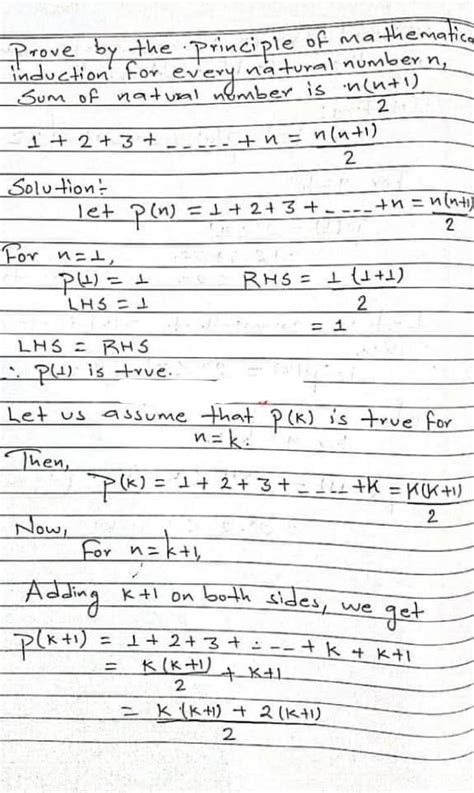 Prove by the principle of mathematica
induction for every natural number n,
Sum of natural number is n(n+1)/2
1 + 2 + 3 + ----- + n = n(n+1)/2
Solution:-
let P(n) = 1 + 2 + 3 + ---- +n = n(n+1)/2
For n=1,
P(1) = 1 RHS = 1 (1+1)/2
LHS = 1
= 1
LHS = RHS
∴ P(1) is true.
Let us assume that P(K) is true for
n=k.
Then,
P(k) = 1 + 2 + 3 + ---- +K = K(K+1)/2
Now,
For n=k+1,
Adding k+1 on both sides, we get
P(k+1) = 1 + 2 + 3 + ---- + k + k+1
= k(k+1)/2 + k+1
= k(k+1) + 2(k+1)/2